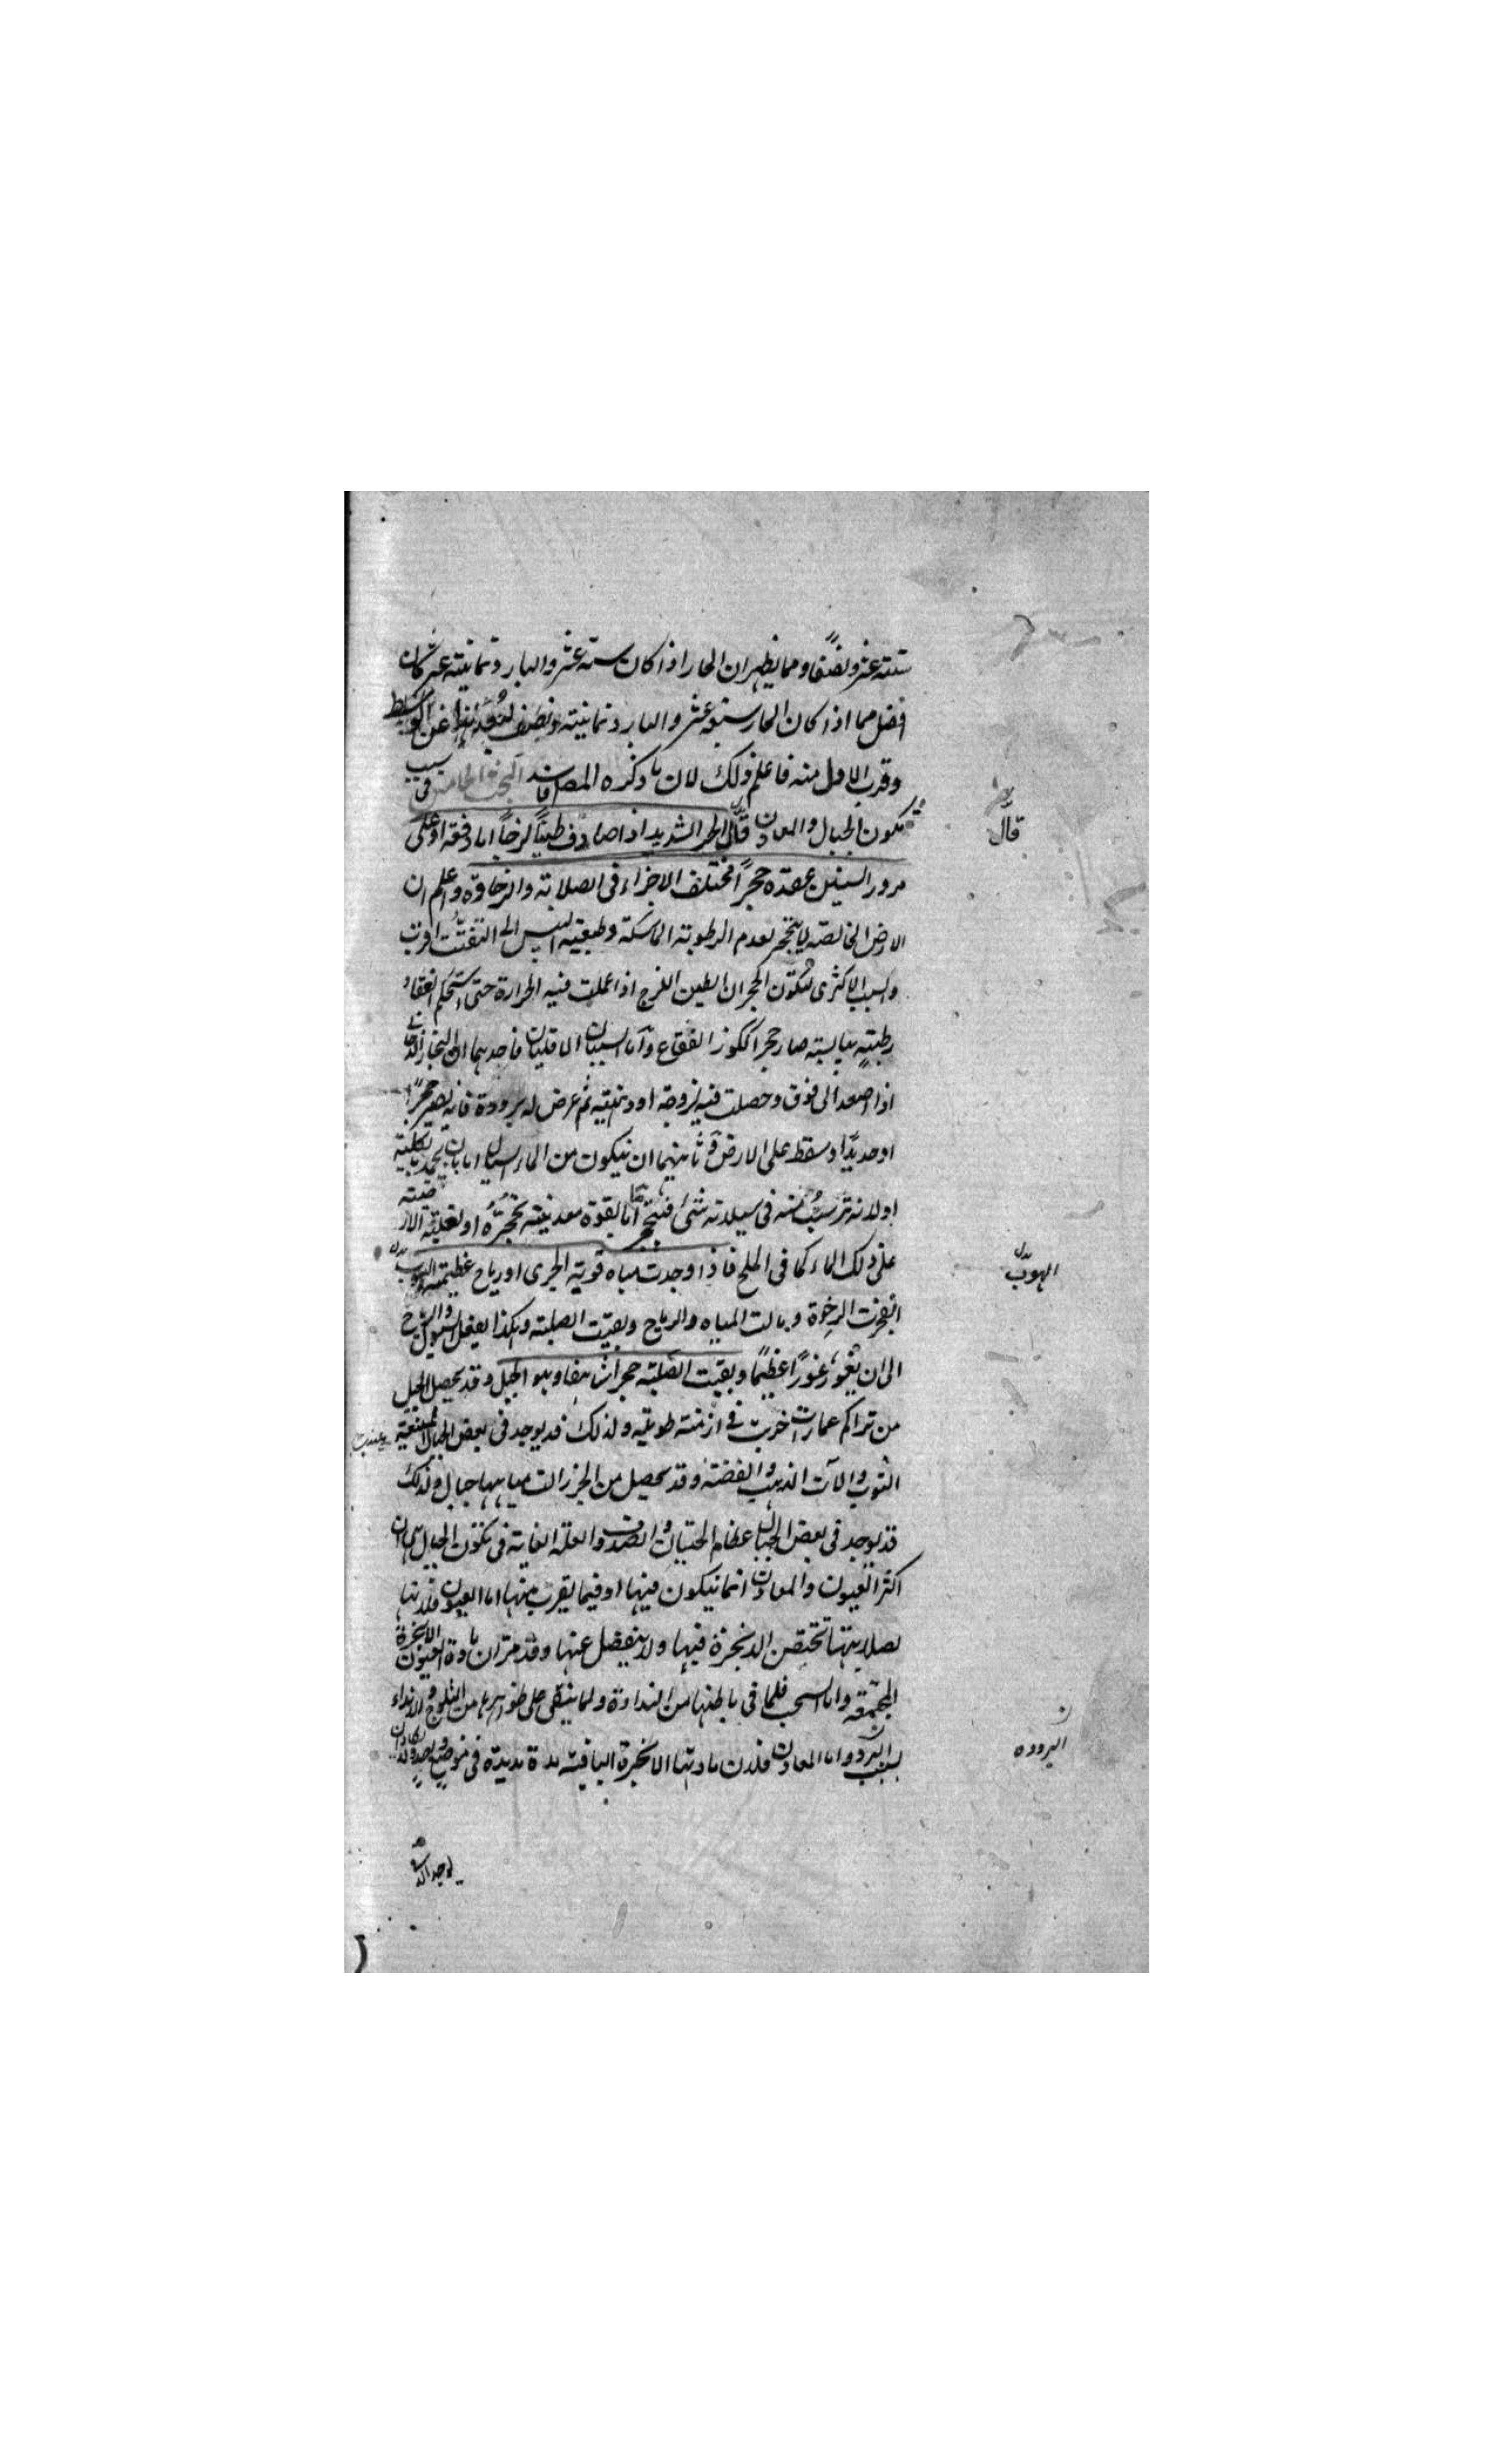 ستة عشر ونصفا ومما يظهر ان الحار اذا كان ستة عشر والبارد ثمانية عشر كان
افضل مما اذا كان الحار سبعة عشر والبارد ثمانية ونصف لبعد هذا عن الوسط
وقرب الاول منه فاعلم ذلك لان ما ذكره المص فاسد البحث الخامس فى سبب
تكون الجبال والمعادن قال الحر الشديد اذا صادف طينا لزجا اما دفعة او على
مرور السنين عقده حجرا مختلف الاجزاء فى الصلابة والرخاوة واعلم ان
الارض الخالصة لا يتحجر لعدم الرطوبة الماسكة وطبيعة اليبس الى التفتت اقرب
والسبب الاكثرى لتكون الحجر ان الطين اللزج اذا عملت فيه الحرارة حتى استحكم انعقاد
رطبه بيابسه صار حجرا ككوز الفقاع واما السببان الباقيان فاحدهما ان البخار الدخانى
اذا صعد الى فوق وحصلت فيه لزوجة او دهنية ثم عرض له برودة فانه يصير حجرا
او حديدا وسقط على الارض وثانيهما ان يتكون من الماء السيال اما بان يجمد بكليته
او لانه ترسب منه فى سيلانه شئ فيتحجر اما بقوة معدنية تحجره او لغلبة الارضية
على ذلك الماء كما فى الملح فاذا وجدت مياه قوية الجرى او رياح عظيمة الهبوب
انفجرت الرخوة وسالت المياه والرياح وبقيت الصلبة وهكذا يفعل السيول والرياح
الى ان يغور غورا عظيما وبقيت الصلبة حجرا شاهقا وهو الجبل وقد يحصل الجبل
من تراكم عمارات خربت فى ازمنة طويلة ولذلك قد يوجد فى بعض الجبال
الثوب والآت الذهب والفضة وقد يحصل من الجزر الت مياهها جبال ولذلك
قد يوجد فى بعض الجبال عظام الحيتان والصدف والعلة الغاية فى تكون الجبال هى ان
اكثر العيون والمعادن انما يتكون فيها او فيما يقرب منها اما العيون فلانها
لصلابتها تحتقن الابخرة فيها ولا ينفصل عنها وقد مر ان مادة العيون الابخرة
المجتمعة واما السحب فلما فى باطنها من النداوة ولما يبقى على ظواهرها من الثلوج والانداء
بسبب البرد واما المعادن فلان مادتها الابخرة الباقية مدة مديدة فى موضع واحد
قال
الهبوب
البرودة